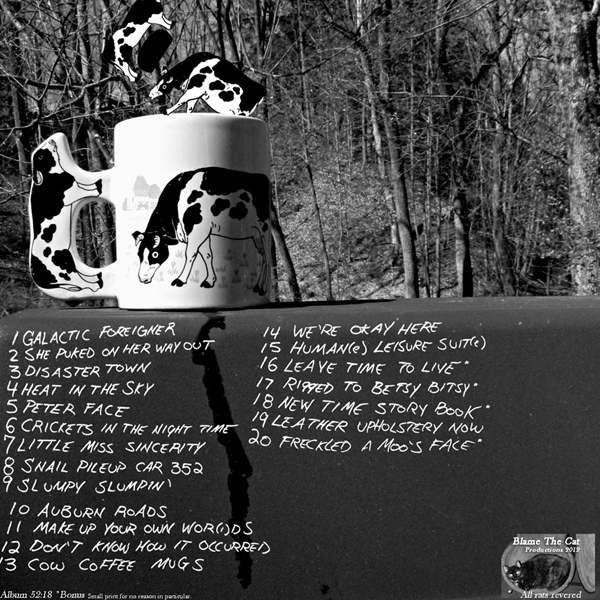 1 GALACTIC FOREIGNER
2 SHE PUKED ON HER WAY OUT
3 DISASTER TOWN
4 HEAT IN THE SKY
5 PETER FACE
6 CRICKETS IN THE NIGHT TIME
7 LITTLE MISS SINCERITY
8 SNAIL PILEUP CAR 352
9 SLUMPY SLUMPIN'
10 AUBURN ROADS
11 MAKE UP YOUR OWN WOR(L)DS
12 DON'T KNOW HOW IT OCCURRED
13 COW COFFEE MUGS
14 WE'RE OKAY HERE
15 HUMAN(E) LEISURE SUIT(E)
16 LEAVE TIME TO LIVE*
17 RIGGED TO BETSY BITSY*
18 NEW TIME STORY BOOK*
19 LEATHER UPHOLSTERY NOW
20 FRECKLED A MOO'S FACE*
Album 52:18 *Bonus Small print for no reason in particular.
Blame The Cat
Productions 2012
All rats revered